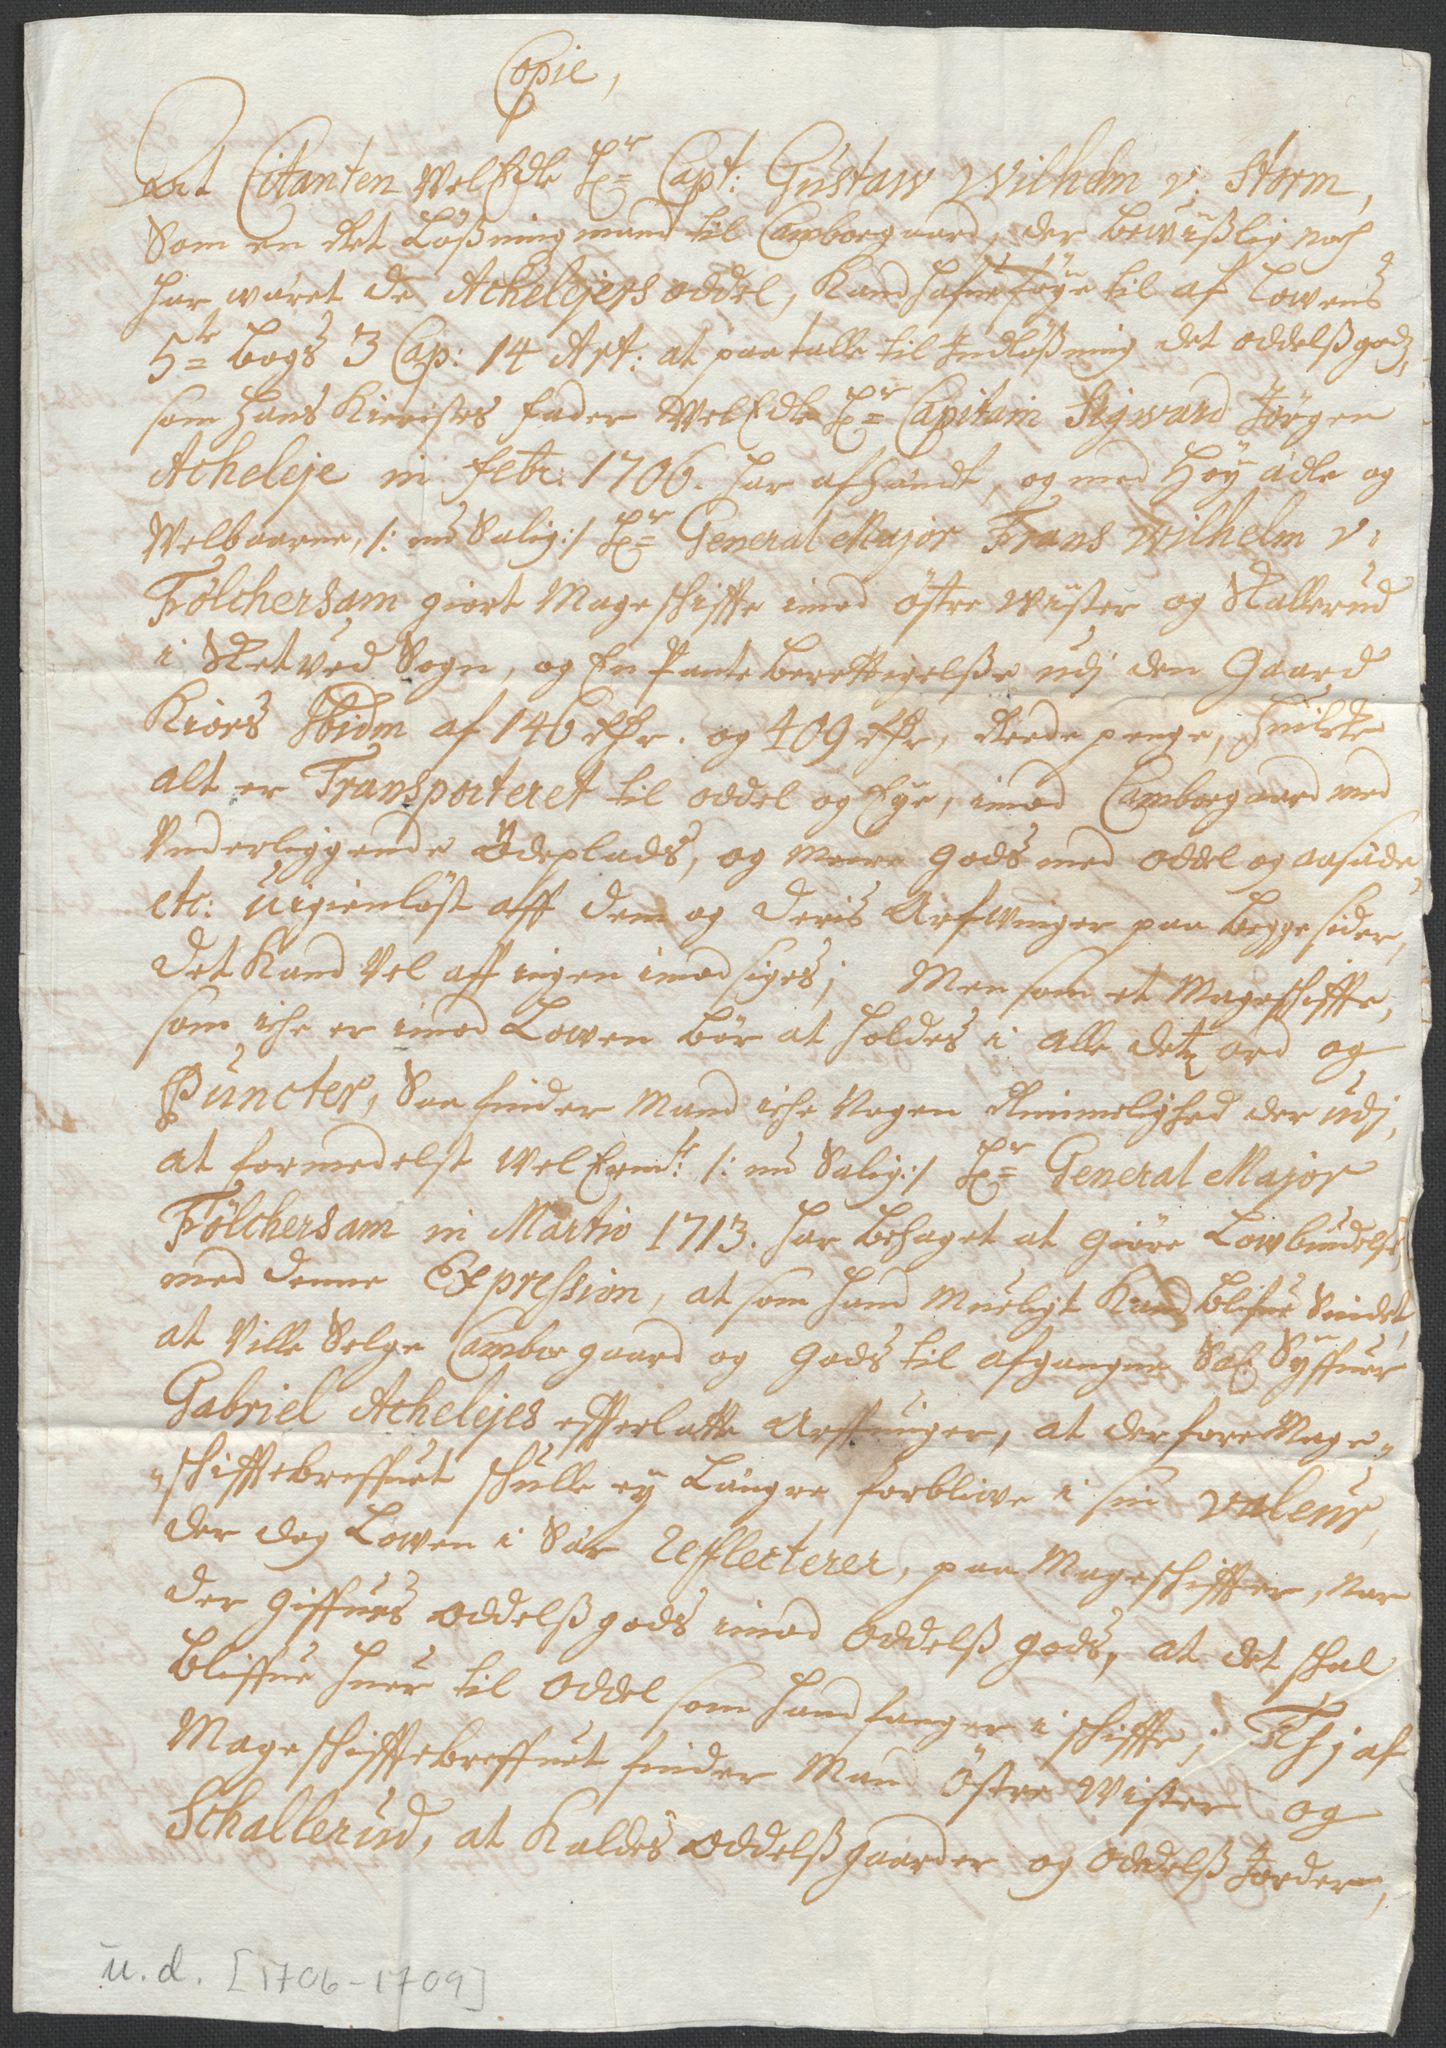 Copie,
At Citanten WelEdle Hr Capt: Gustaw Wilhelm v: Storm,
Som en Ret Lößningmand til Camboegaard, der bewüßlig noch
har wäret de Achelejers oddel, Kand hafue føye til af Lowens
5te Bogs 3 Cap: 14 Art: at paatalle til Indlößning det oddelß gods,
som Hans Kieristes fader WelEdle Hr Capitain Sigward Jörgen
Acheleje in febr: 1706. har afhandt, og med Høyädle og
Welbaarne, /: nu Salig:/ Hr General Major Frans Wilhelm v:
Fölchersam giort Mageschiffte imod östre Wister og Skallerud
i Sketved Sogn, og En Pante Berettigelße udj den Gaard
Kiøes Ibidm af 146 Rdr. og 409 Rdr, Reede penge, huilcke
alt er Transporteret til oddel og Eye, imod Camboegaard med
Underliggende Ödeplads, og meere Gods med oddel og aasäde
etc: uigienlöst aff dem og deris Arfwinger paa begge sider,
det Kand Vel aff ingen imodsiges; Men som et Mageschiffte,
som iche er imod Lowen bör at holdes i alle detz ord og
Puncter, Saa finder Mand iche Nogen Rimmelighed der udj,
at formedelst WelErmte: /: nu Salig:/ Hr General Major
Fölchersam in Martio 1713. har behaget at giöre Lowbüdelse
med denne Expression, at som hand Mueligt Kand blifue Sindet,
at Ville Selge Camboegaard og Gods til afgangne Sal: Syffuer
Gabriel Achelejes effterlatte Arffuinger, at derfore Mage„
„schifftebreffuet schulle ey Längre forbliwe i sin valeur,
der dog Lowen i Sär reflecterer, paa Mageschiffter, naar
der giffues oddelß gods imod Oddelß gods, at det schal
bliffue huer til Oddel som hand fanger i schiffte; Thj af
Mageschifftebreffuet finder Man Östre Wister og
Schallerud, at Kaldes Oddelß gaarder og Oddelß Jorder,
u. d. [1706-1709]